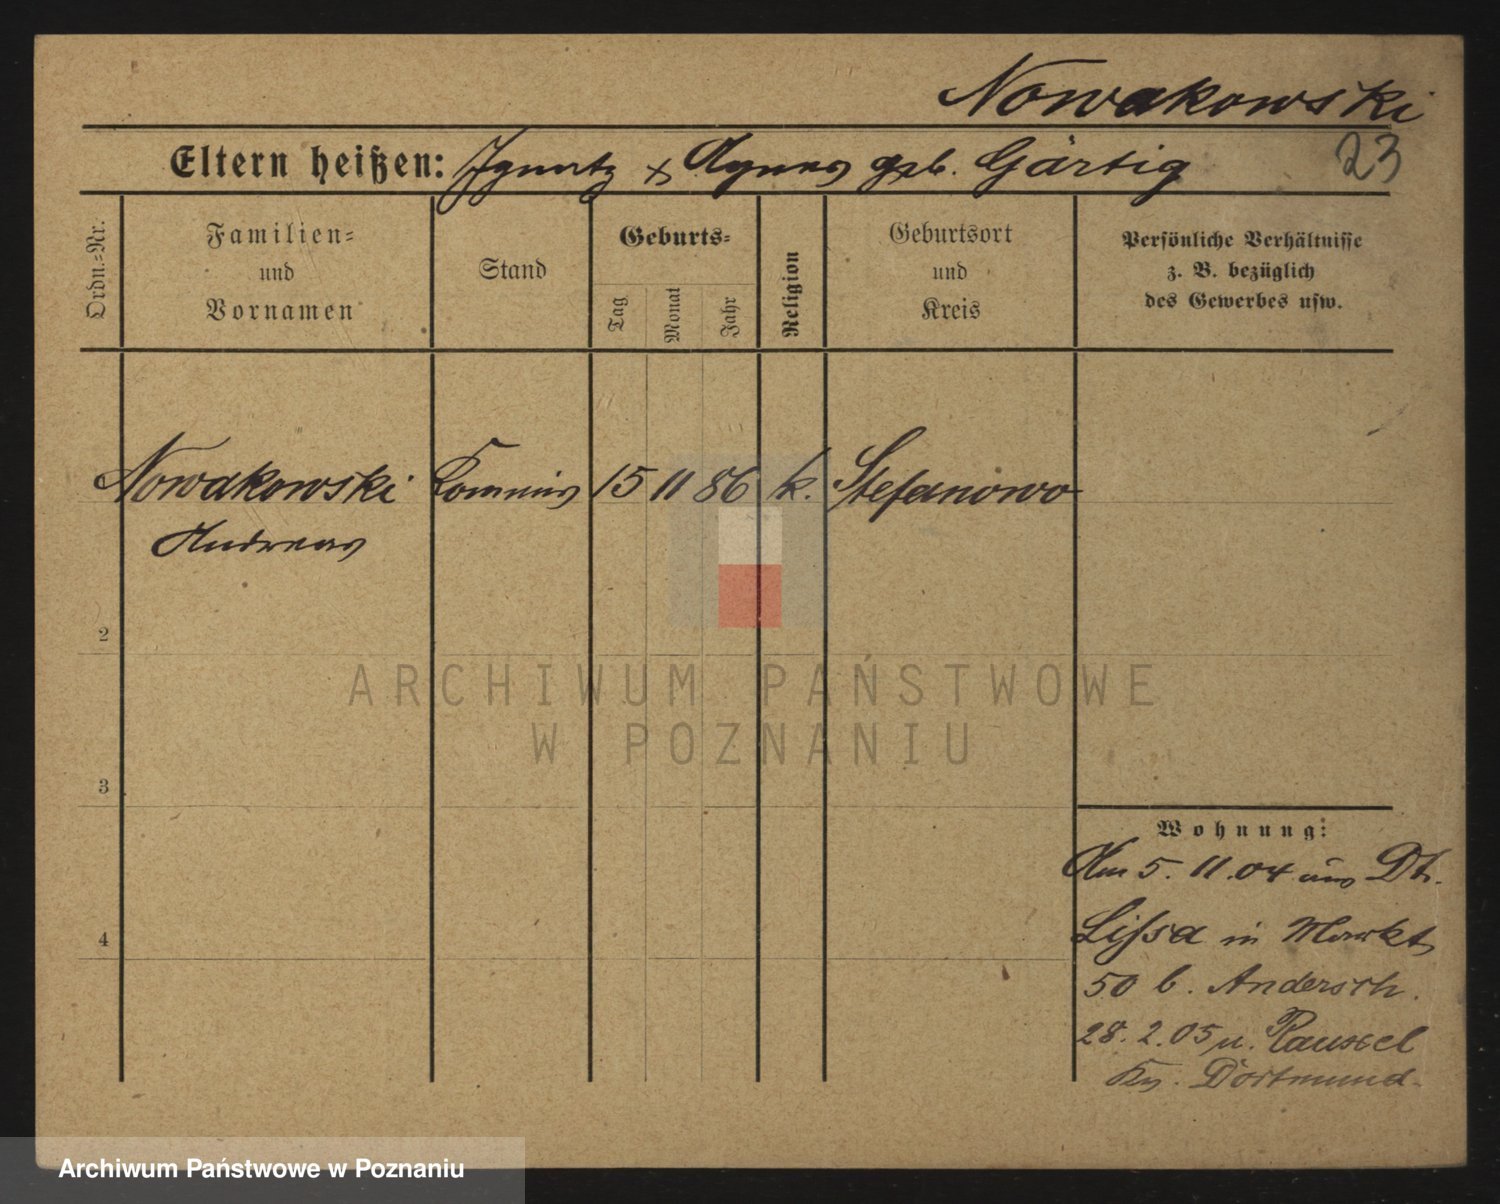 Nowakowski
23
Eltern heißen: Ignatz + Agnes geb. Gärtig
Ordn.=Nr.
Familien=
und
Vornamen
Stand
Geburts=
Tag
Monat
Jahr
Religion
Geburtsort
und
Kreis
Persönliche Verhältnisse
z. B. bezüglich
des Gewerbes usw.
Nowakowski Kommis 15 11 86 k. Stefanowo
Andreas
2
3
4
Wohnung:
Am 5. 11. 04 aus Dt.
Lissa in Markt
50 b. Andersch.
28. 2. 05 n. Rauxel
Kr. Dortmund.
ARCHIWUM PAŃSTWOWE
W POZNANIU
Archiwum Państwowe w Poznaniu